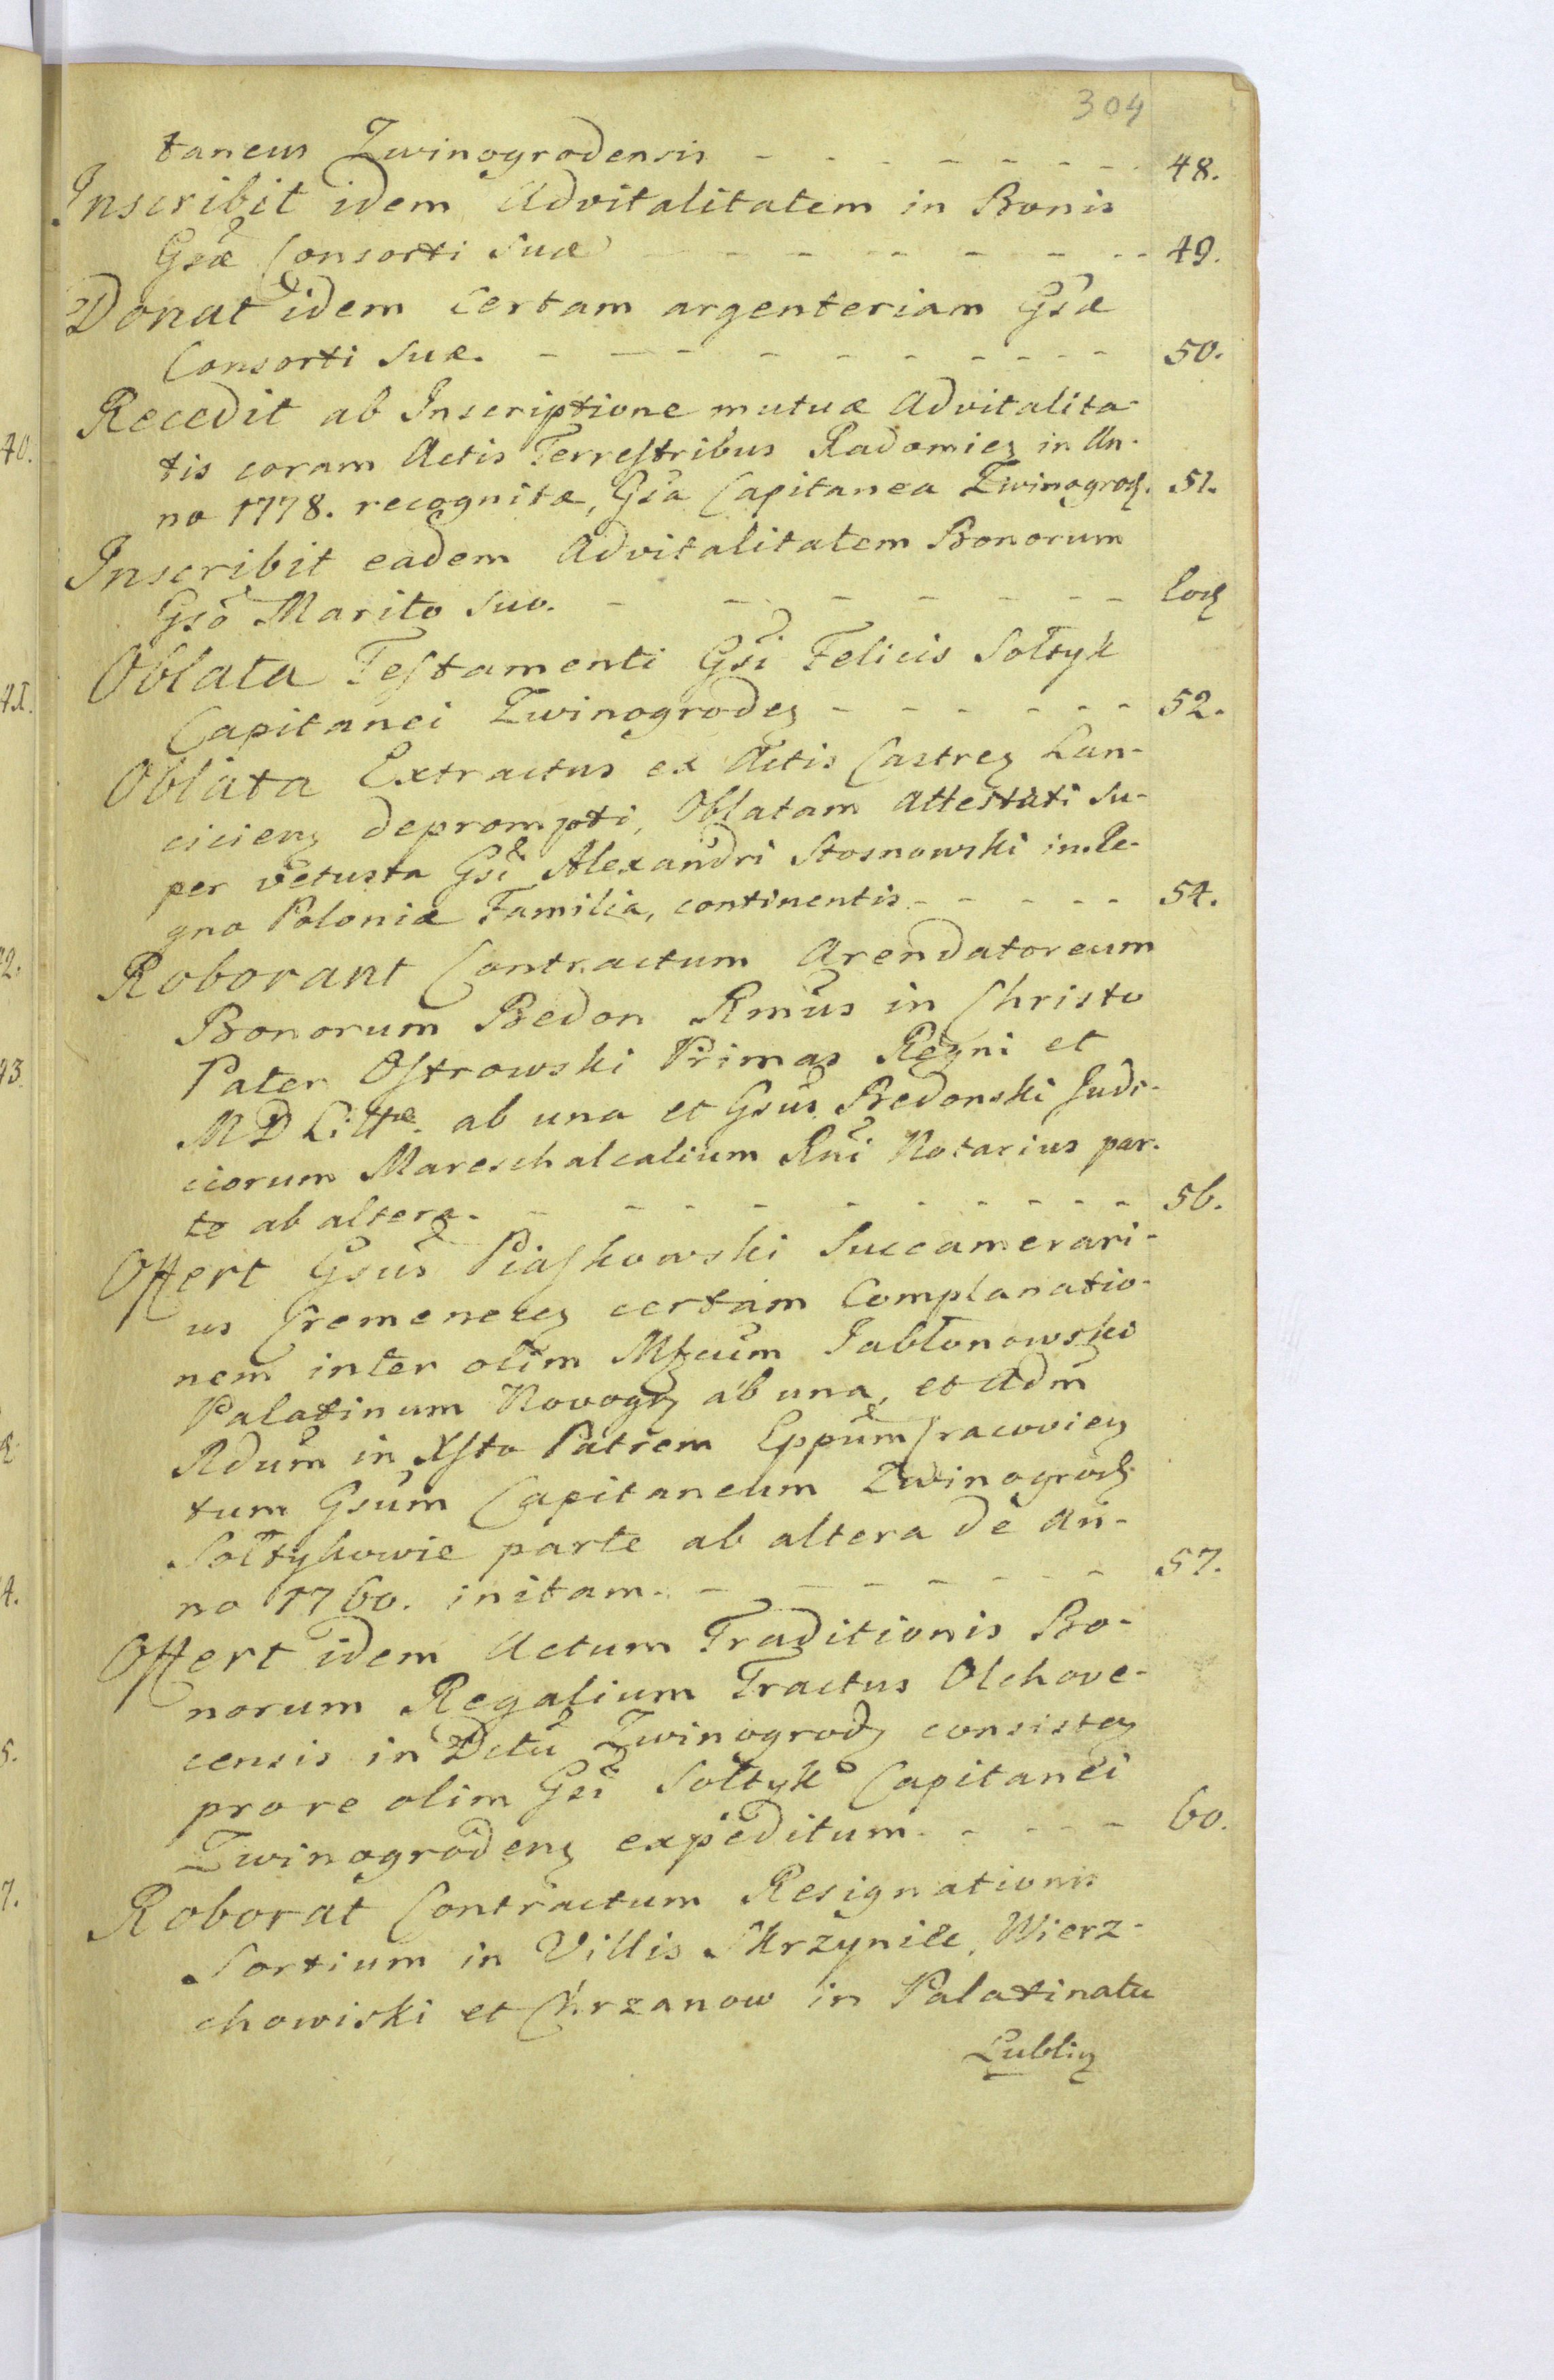 304
taneus Zwinogrodensis - - - - - - - 48.
Inscribit idem Advitalitatem in Bonis
Gsæ Consorti Suæ - - - - - - - 49.
Donat idem certam argenteriam Gsæ
Consorti Suæ. - - - - - - - - 50.
Recedit ab Inscriptione mutuæ Advitalita-
tis coram Actis Terrestribus Radomieȝ in An-
no 1778. recognitæ, Gsa Capitanea Zwinogrodȝ. 51.
Inscribit eadem Advitalitatem Bonorum
Gso Marito Suo. - - - - - - - eodȝ
Oblata Testamenti Gsi Felicis Sołtyk
Capitanei Zwinogrodeȝ - - - - - - 52.
Oblata Extractus ex Actis Castreȝ Lan-
cicienȝ deprompti, Oblatam Attestati Su-
per vetusta Gsi Alexandri Stosnowski in Re-
gno Poloniæ Familia, continentis - - - - - 54.
Roborant Contractum Arendatoreum
Bonorum Bedon Rmus in Christo
Pater Ostrowski Primas Regni et
M D Littæ. ab una et Gsus Bedonski Judi-
ciorum Mareschalcalium Rni Notarius par-
te ab altera. - - - - - - - - 56.
Offert Gsus Piaskowski Succamerari-
us Cremeneceȝ certam Complanatio-
nem inter olim Mfcum Jabłonowski
Palatinum Novogrȝ ab una, et Adm
Rdum in Xsto Patrem Eppum Cracovieȝ
tum Gsum Capitaneum Zwinogrodȝ
Sołtykowie parte ab altera de An-
no 1760. initam. - - - - - - - 57.
Offert idem Actum Traditionis Bo-
norum Regalium Tractus Olchowe-
censis in Dctu Zwinogrodȝ consisteȝ
pro re olim Gsi Sołtyk Capitanei
Zwinogrodenȝ expeditum. - - - - 60.
Roborat Contractum Resignationis
Sortium in Villis Skrzynice, Wierz-
chowiski et Chrzanow in Palatinatu
Lubliȝ
40.
41.
42.
43.